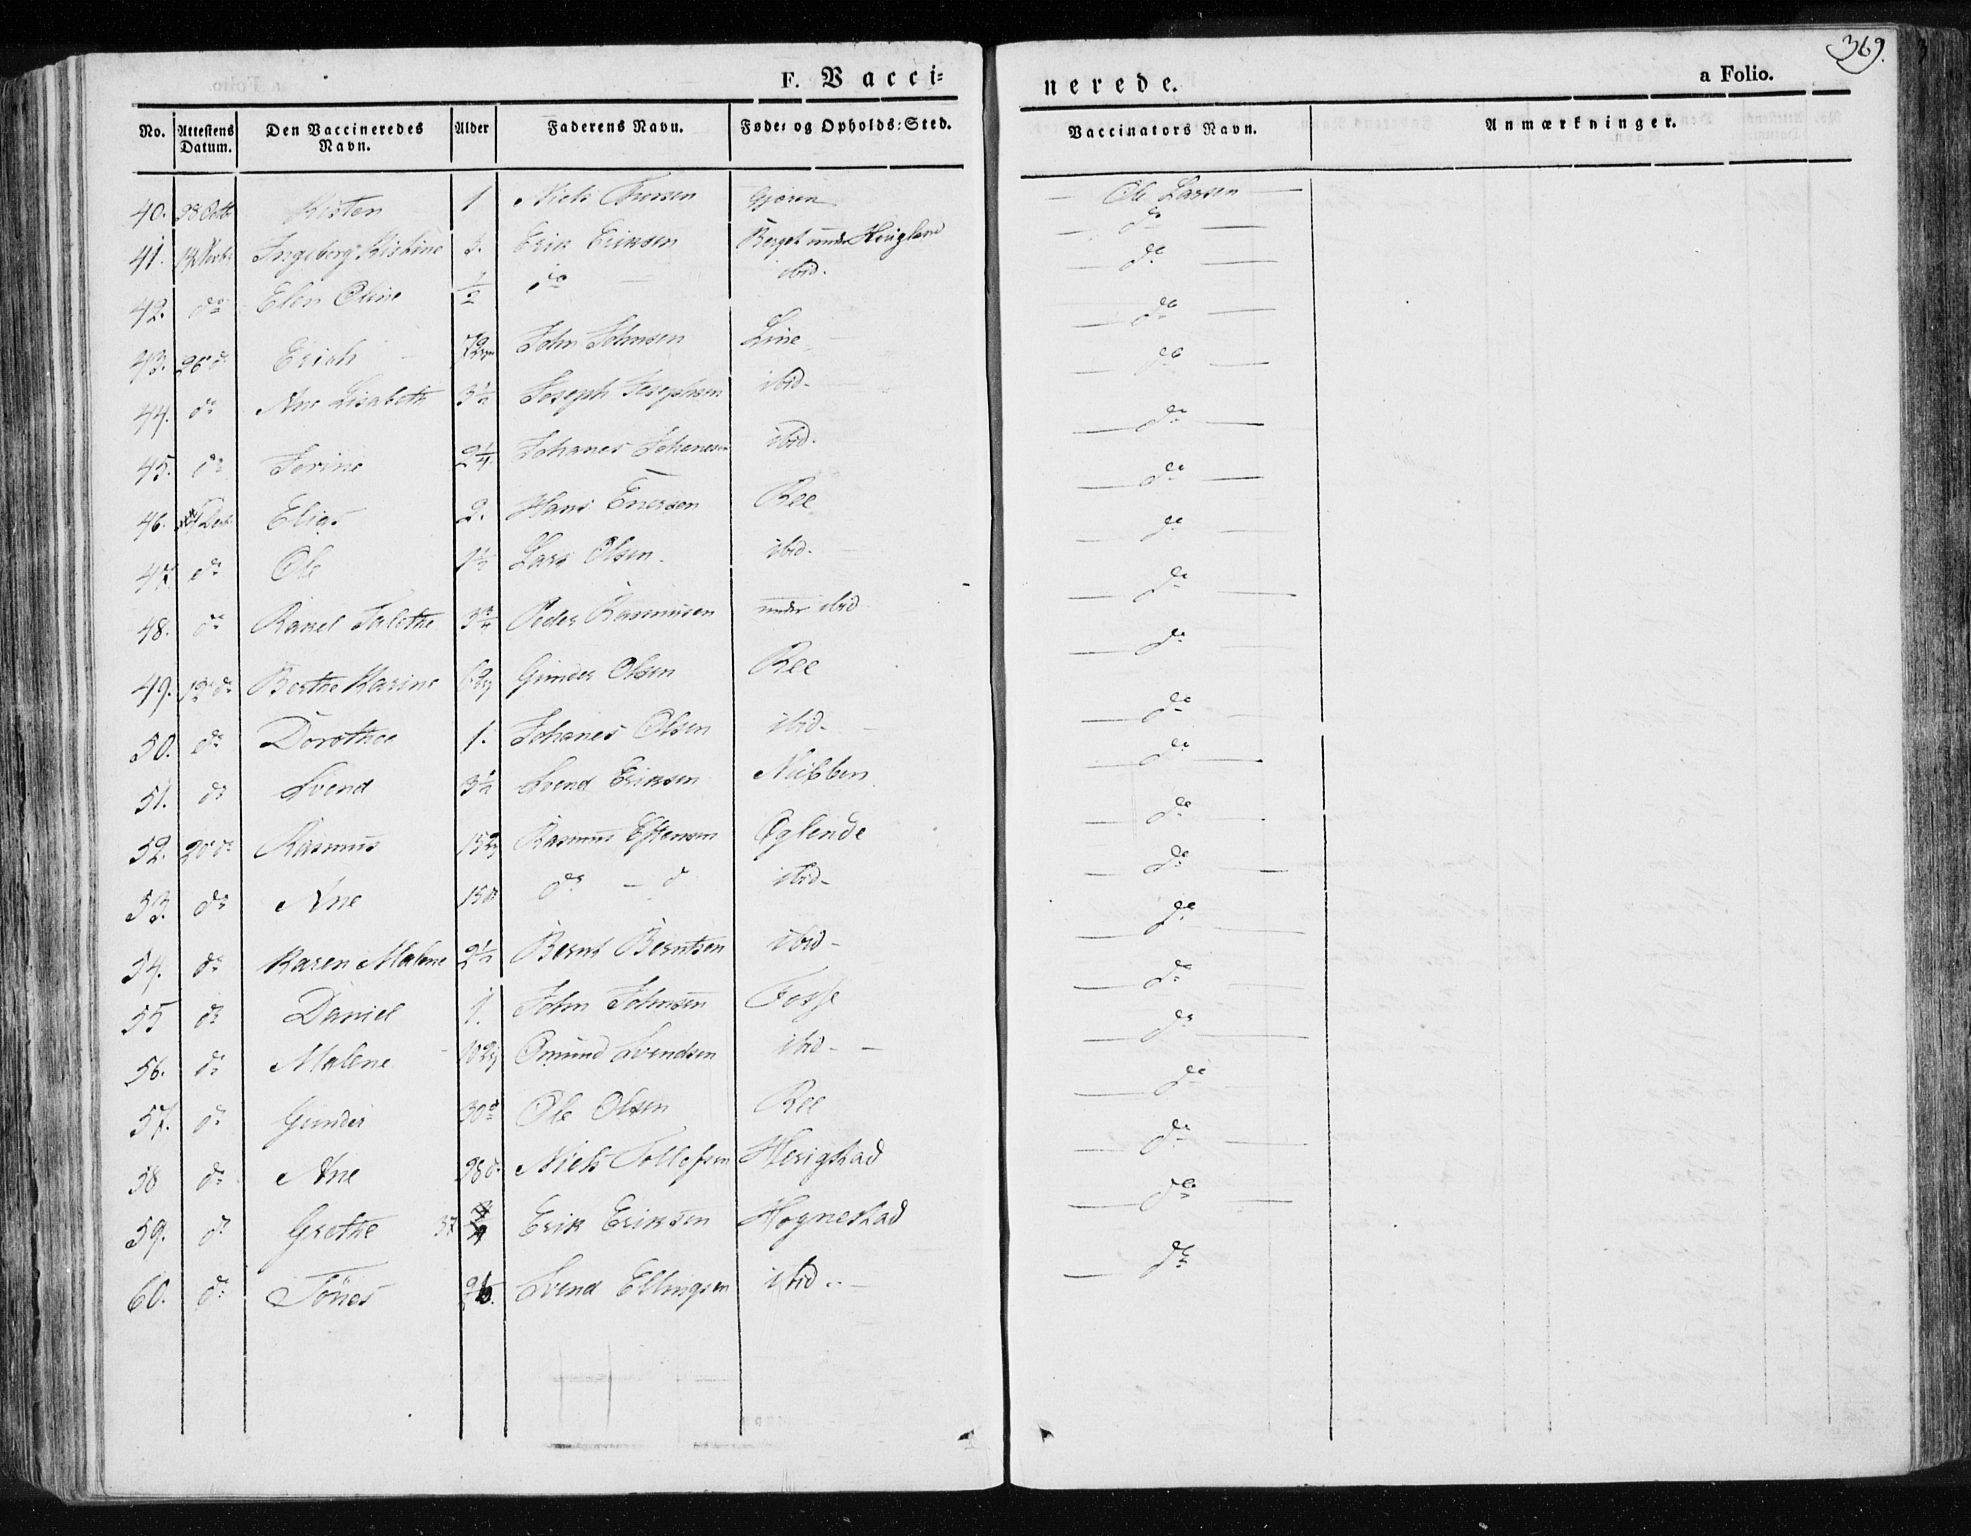 369.
F. Vacci= nerede. a Folio.
No. Attestens Datum. Den Vaccineredes Navn. Alder Faderens Navn. Føde= og Opholds=Sted. Vaccinators Navn. Anmærkninger.
40. 28 Octb Kisten 1 Niels Gjøren — Ole Larsen —
41. Ingeborg Kistine 3. Erik Eriksen Berget under Høigland — do —
42. do Elen Oline 1/2 do — ibid. — do —
43. 20 d. Erich John Johnsen Line — do —
44. do Ane Lisabeth 3 1/2 Joseph Josephsen ibid. — do —
45. do Serine 2 1/4 Johanes Johanesen ibid. — do —
46. Decb Elias 2. Hans Enersen Ree — do —
47. do Ole 1 1/2 Lars Olsen. ibid. — do —
48. do Rakel Talethe 3 3/4 Peder Rasmusen under ibid — do —
49. 12 do Berthe Karine Gunder Olsen Ree — do —
50. do Dorothea 1. Johanes Olsen ibid — do —
51. do Svend 3 1/2 Svend Eriksen Nubben — do —
52. 20 do Rasmus Rasmus Eftensen Øglende — do —
53. do Ane do — d ibid — do —
54. do Karen Malene 2 1/2 Bernt Berntsen ibid — do —
55 do Daniel 1. John Johnsen Fosse — do —
56. do Malene Omund Svendsen ibid — do —
57. do Gunder Ole Olsen Ree — do —
58 do Ane 28 d. Niels Tollefsen Herigstad — do —
59. do Grethe Erik Eriksen Hognestad — do —
60. do Tönes Svend Ellingsen ibid — do